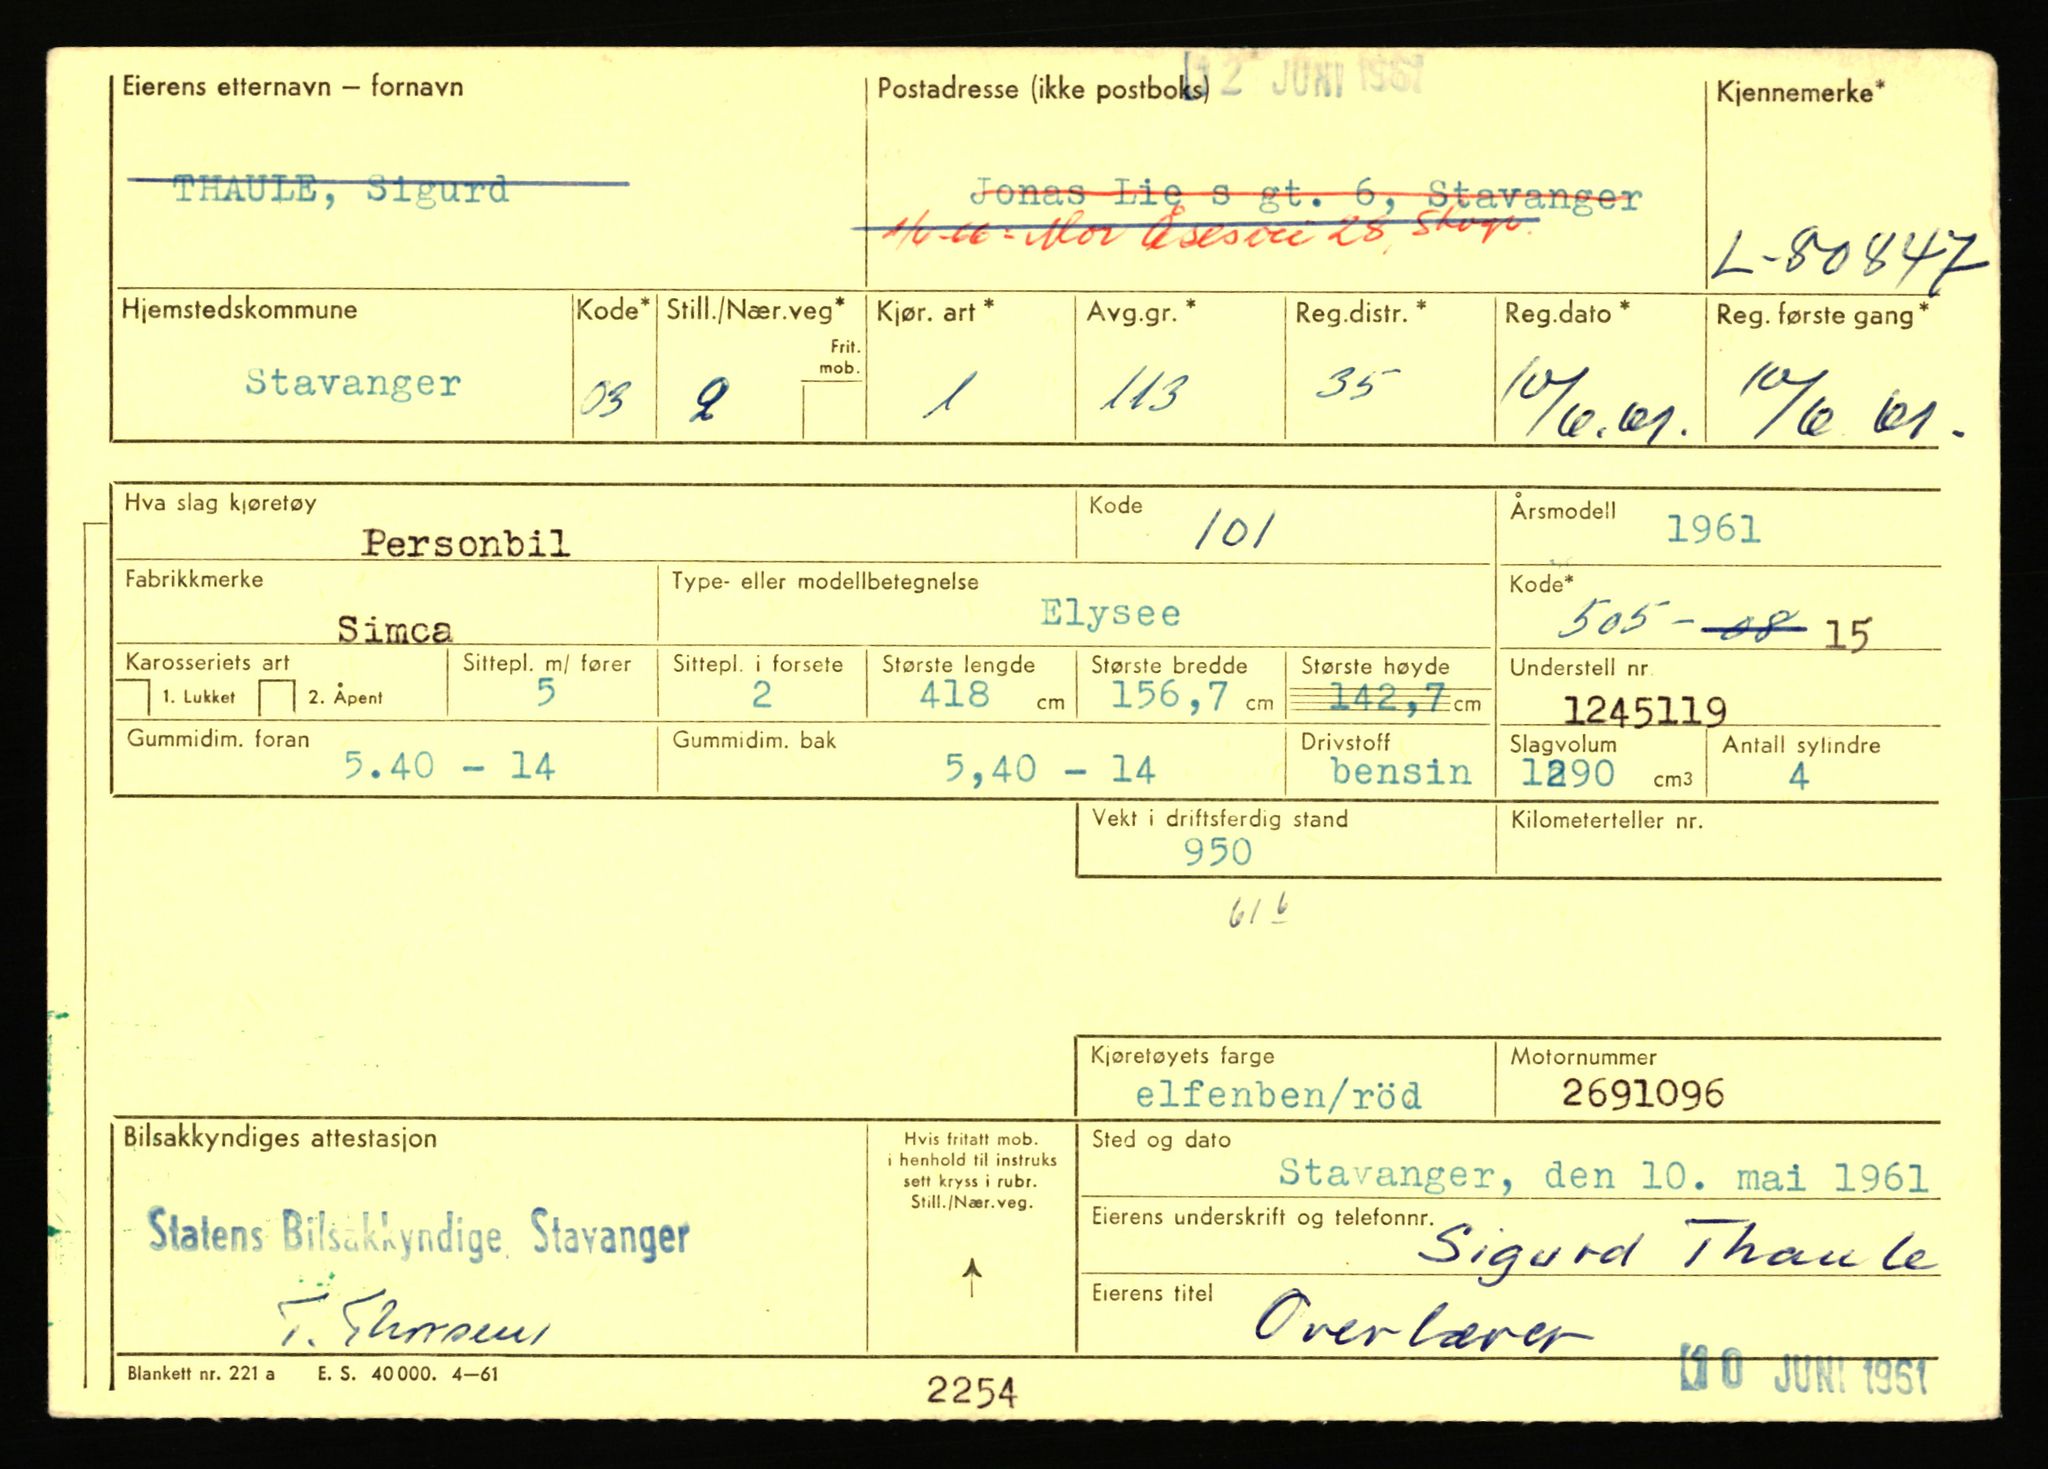 12 JUNI 1961
Eierens etternavn – fornavn
Postadresse (ikke postboks)
Kjennemerke*
THAULE, Sigurd
Jonas Lie s gt. 6, Stavanger
Mor Åsesvei 28, Stvgr.
L-80847
Hjemstedskommune Kode* Still./Nær.veg* Kjør. art* Avg.gr.* Reg.distr.* Reg.dato* Reg. første gang*
Frit.
mob.
Stavanger 03 2 1 113 35 10/6.61. 10/6 61.
Hva slag kjøretøy Kode Årsmodell
Personbil 101 1961
Fabrikkmerke Type- eller modellbetegnelse Kode*
Simca Elysee 505-08 15
Karosseriets art Sittepl. m/ fører Sittepl. i forsete Største lengde Største bredde Største høyde Understell nr.
1. Lukket 2. Åpent 5 2 418 cm 156,7 cm 142,7 cm 1245119
Gummidim. foran Gummidim. bak Drivstoff Slagvolum Antall sylindre
5.40 - 14 5,40 - 14 bensin 1290 cm3 4
Vekt i driftsferdig stand Kilometerteller nr.
950
61 6
Kjøretøyets farge Motornummer
elfenben/röd 2691096
Bilsakkyndiges attestasjon
Hvis fritatt mob.
i henhold til instruks
sett kryss i rubr.
Still./Nær.veg.
Sted og dato
Stavanger, den 10. mai 1961
Statens Bilsakkyndige Stavanger
Eierens underskrift og telefonnr.
Sigurd Thaule
T. Thorsen
Eierens titel
Overlærer
10 JUNI 1961
Blankett nr. 221 a E. S. 40000. 4–61
2254